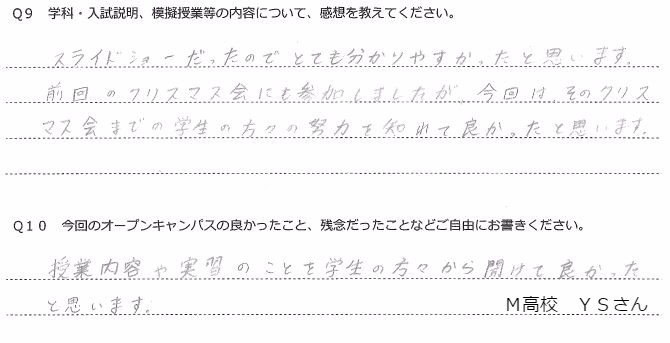 Q9 学科・入試説明、模擬授業等の内容について、感想を教えてください。
スライドショーだったのでとても分かりやすかったと思います。
前回のクリスマス会にも参加しましたが、今回は、そのクリス
マス会までの学生の方々の努力を知れて良かったと思います。
Q10 今回のオープンキャンパスの良かったこと、残念だったことなどご自由にお書きください。
授業内容や実習のことを学生の方々から聞けて良かった
と思います。
M高校 YSさん